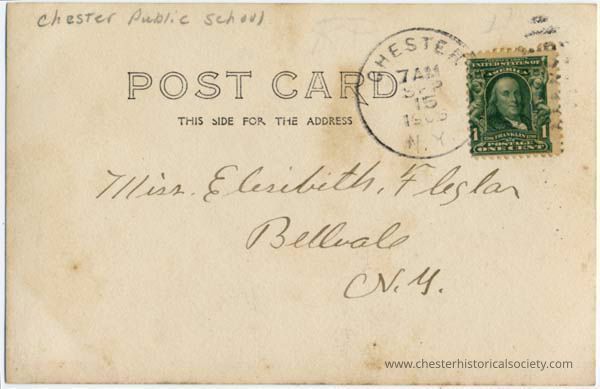 Chester Public School
POST CARD
THIS SIDE FOR THE ADDRESS
CHESTER
7AM
SEP
15
N.Y.
UNITED STATES OF AMERICA
1
FRANKLIN
1
POSTAGE
ONE CENT
Miss. Elesibeth, Fleglar
Bellvale
N.Y.
www.chesterhistoricalsociety.com